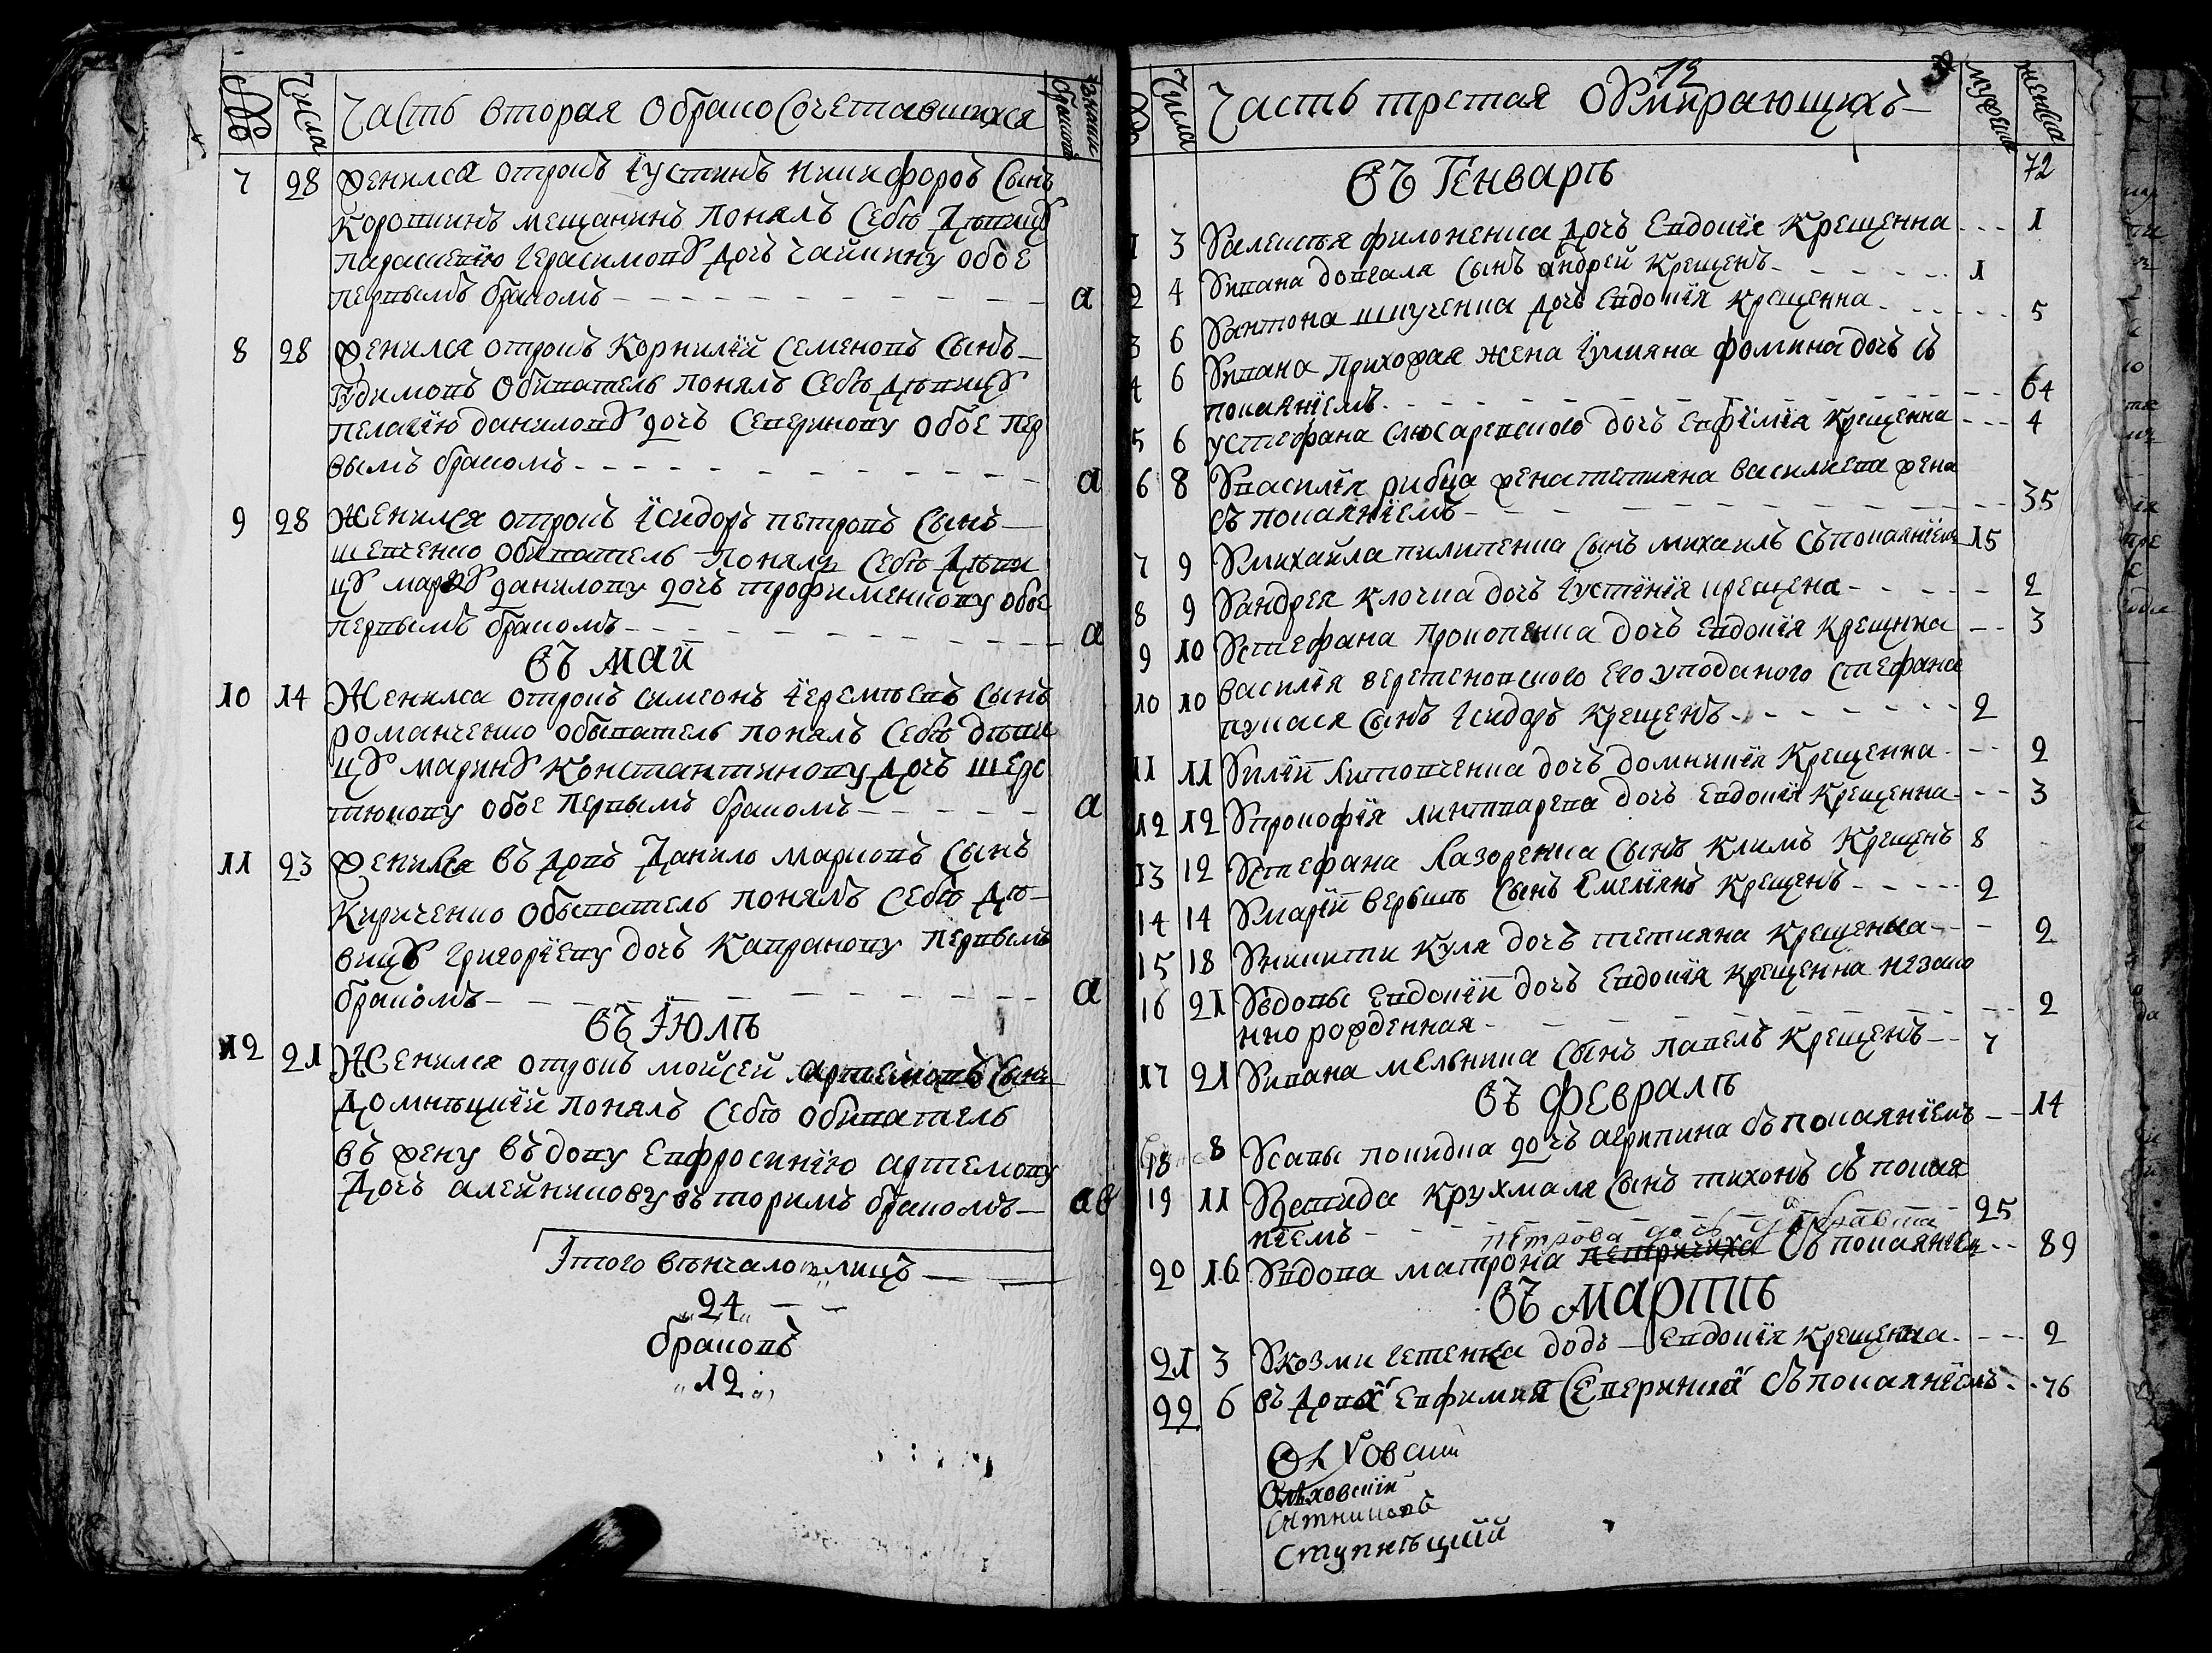 №
Числа
Часть вторая О бракосочетавшихся
7 28 Женился отрокъ Іустинъ Никифоровъ сынъ
Корошинъ мещанинъ понялъ себѣ дѣвицу
Параскевію Герасимову дочъ Чайкину обое
первымъ бракомъ а
8 28 Женился отрокъ Корнилій Семеновъ сынъ
Гудимовъ обиватель понялъ себѣ дѣвицу
Пелагію Данилову дочъ Северинову обое пер
вымъ бракомъ а
9 28 Женился отрокъ Ісидоръ Петровъ сынъ
Шевченко обиватель понялъ себѣ дѣви
цу Данилову дочъ Трофименкову обое
первымъ бракомъ а
Въ Маѣ
10 14 Женился отрокъ Симеонъ Іеремѣевъ сынъ
Романченко обыватель понялъ себѣ дѣви
цу Марину Константинову дочъ Шерс
тюкову обое первымъ бракомъ а
11 23 Женился вдовъ Данило Марковъ сынъ
Кириченко обыватель понялъ себѣ дѣ
вицу Григоріеву дочъ Капранову первымъ
бракомъ а
Въ Іюлѣ
12 21 Женился отрокъ Мойсей Артемовъ сынъ
Домнѣцкій понялъ себѣ обиватель
въ жену въдову Евфросинію Артемову
дочъ Алейникову въторимъ бракомъ ав
Итого вѣнчало лицъ
24
браковъ
12
Числа
Часть третая О умирающихъ
12
мужеска
женска
Въ Генварѣ
72
1 3 У Алексѣя Филоненка дочъ Евдокія крещенна 1
2 4 У Ивана Довгаля сынъ Андрей крещенъ 1
3 6 У Антона дочъ Евдокія крещенна 5
4 6 У Ивана жена Іулияна Фомина дочъ съ
покаяніемъ 64
5 6 У Стефана Слюсаревского дочъ Евфимія крещенна 4
6 8 У Василія Рибца жена Тетияна Василиева жена
съ покаяніемъ 35
7 9 У Михайла Пилипенка сынъ Михаилъ съ покаяніемъ 15
8 9 У Андрея Клочка дочъ Іустінія крещена 2
9 10 У Стефана Прокопенка дочъ Евдокія крещнна 3
10 10 Василія Веретеновского его уподаного Стефана
сынъ Ісидоръ крещенъ 2
11 11 У Иліи Литовченка дочъ Домникія крещенна 2
12 12 У Прокофія Линтварева дочъ Евдокія крещенна 3
13 12 У Стефана Лазоренка сынъ Климъ крещенъ 8
14 14 У Маріи сынъ Емеліянъ крещенъ 2
15 18 У Никити Куля дочъ Тетияна крещенна 2
16 21 У въдовы Евдокіи дочъ Евдокія крещенна незако
нно рожденная 2
17 21 У Ивана Мельника сынъ Павелъ крещенъ 7
Въ Февралѣ
18 8 У Савы дочъ Агрипина съ покаяніемъ 14
19 11 У Крухмаля сынъ Тихонъ съ покая
ніемъ 25
Петрова дочъ
20 16 У вдова Матрона Петричиха съ покаяніем 89
Въ Мартѣ
21 3 У Козми дочъ Евдокія крещенна 2
22 6 Въдова Евфимия Северинка съ покаяніемъ 76
Ольховскій
Ситниковъ
Ступнѣцкій